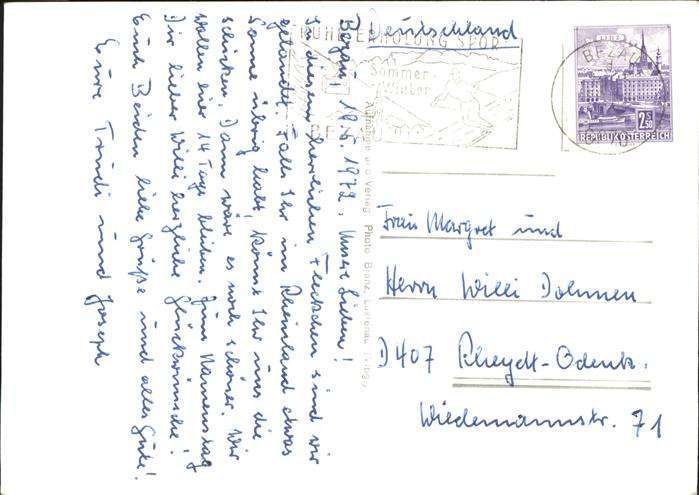 Bezau, 19.5.1972. Unsere Lieben!
In diesem herrlichen Fleckchen sind wir
gelandet. Falls Ihr im Rheinland etwas
Sonne übrig habt, könnt Ihr uns die
schicken. Dann wäre es noch schöner. Wir
wollen hier 14 Tage bleiben. Zum Namenstag
Dir lieber Willi herzliche Glückwünsche!
Euch Beiden liebe Grüße und alles Gute!
Eure Trudi und Joseph
Deutschland
RUHE ERHOLUNG SPORT
Sommer-
Winter
BEZAU
BEZAU
LINZ
2.50 S
REPUBLIK ÖSTERREICH
Verlag Photo Branz, Lustenau
Frau Margret und
Herrn Willi Dohmen
D407 Rheydt-Odenk.
Wiedemannstr. 71